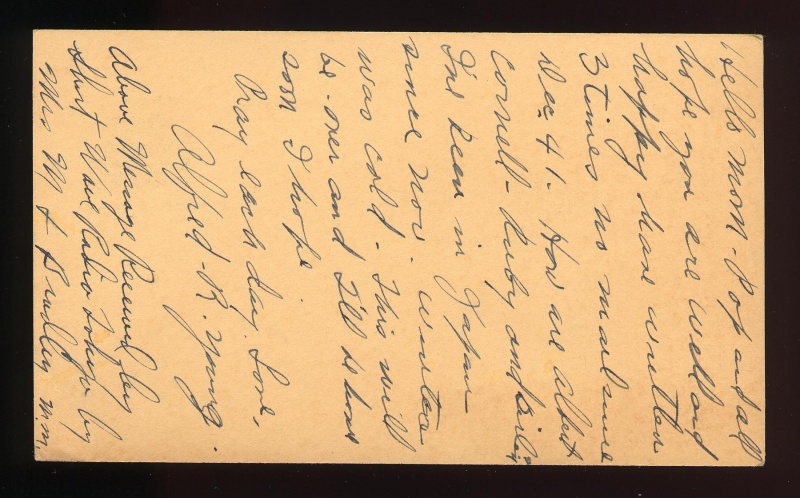 Hello Mom - Pop and all
hope you are well and
happy have written
3 times no mail since
Dec 41. How are Albert
Cornell - Ruby and
I've been in Japan
since Nov. winter
was cold - This will
be over and I'll be home
soon I hope.
Pray each day. Love,
Alfred - R. Young.
Above Message Received by
Short Wave Radio Tokyo by
Mrs M L Bradley